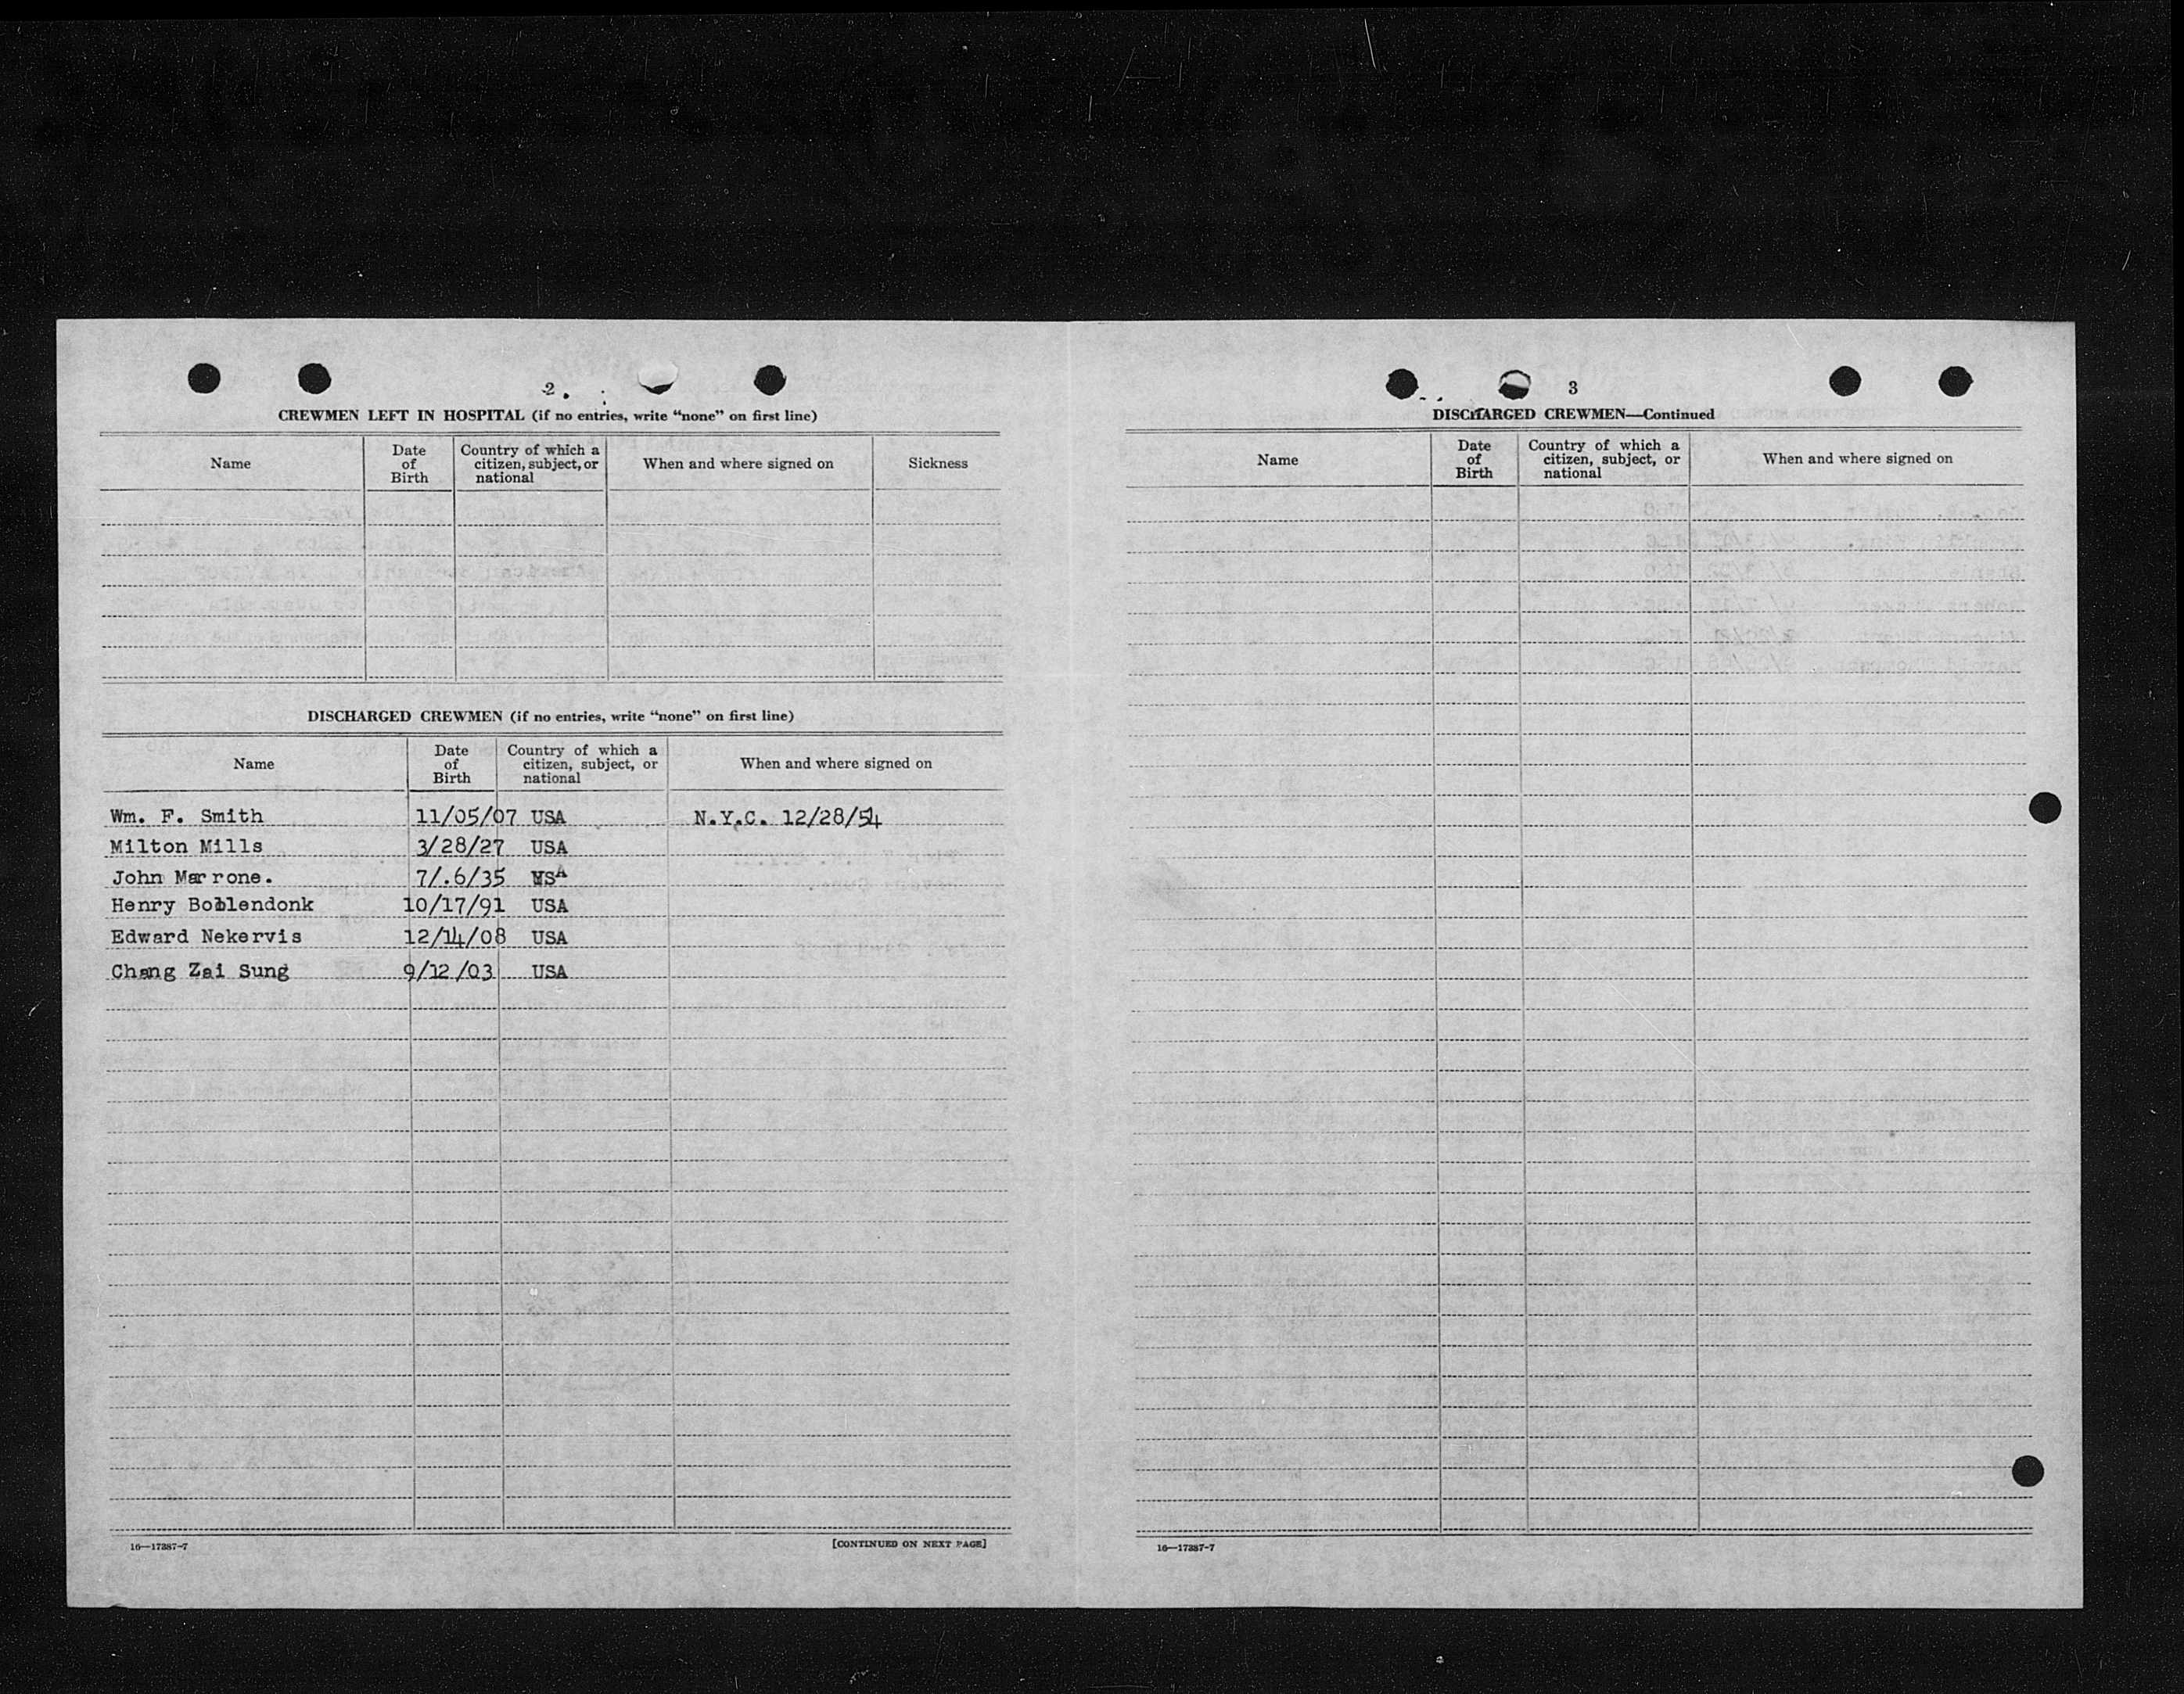 2.
CREWMEN LEFT IN HOSPITAL (if no entries, write “none” on first line)
Name
Date of Birth
Country of which a citizen, subject, or national
When and where signed on
Sickness
DISCHARGED CREWMEN (if no entries, write “none” on first line)
Name
Date of Birth
Country of which a citizen, subject, or national
When and where signed on
Wm. F. Smith 11/05/07 USA N.Y.C. 12/28/54
Milton Mills 3/28/27 USA
John Marrone. 7/.6/35 USA
Henry Boblendonk 10/17/91 USA
Edward Nekervis 12/14/08 USA
Chang Zai Sung 9/12/03 USA
16—17387-7
[CONTINUED ON NEXT PAGE]
3
DISCHARGED CREWMEN—Continued
Name
Date of Birth
Country of which a citizen, subject, or national
When and where signed on
16—17387-7